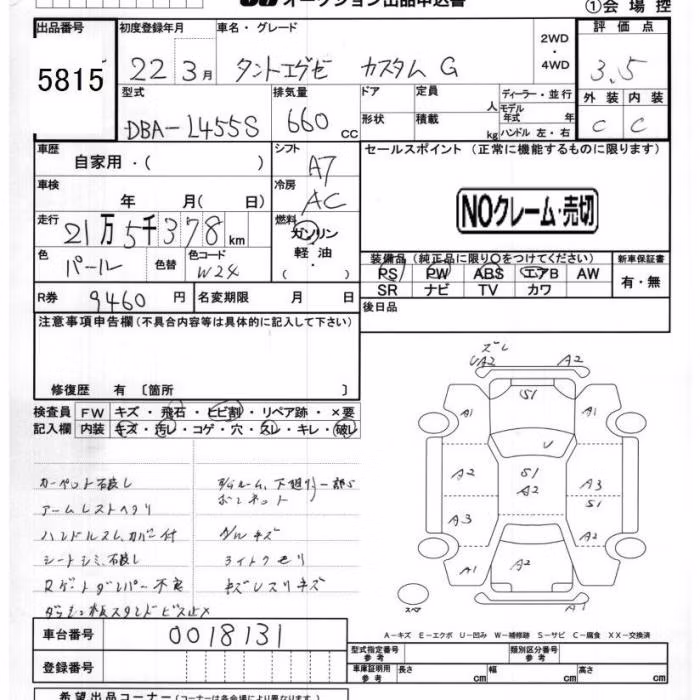 オークション出品申込書 ①会場控
出品番号 初度登録年月 車名・グレード 2WD・4WD 評価点
5815 22 3月 タントエグゼ カスタムG 3.5
型式 排気量 ドア 定員 人 ディーラー・並行 外装 内装
DBA-L455S 660cc 形状 積載 kg モデル年式 年 ハンドル 左・右 C C
車歴 自家用・( ) シフト A7 セールスポイント (正常に機能するものに限ります)
車検 年 月( 日) 冷房 AC
NOクレーム・売切
走行 21万5千378km 燃料 ガソリン 軽油 ・( )
色 パール 色替 色コード W24 装備品(純正品に限り○をつけてください) 新車保証書
PS PW ABS エアB AW 有・無
SR ナビ TV カワ
R券 9460円 名変期限 月 日 後日品
注意事項申告欄(不具合内容等は具体的に記入して下さい)
修復歴 有 〔箇所 〕
検査員 FW キズ・飛石・ヒビ割・リペア跡・×要
記入欄 内装 キズ・汚レ・コゲ・穴・スレ・キレ・破レ
カーペット破レ
アームレストヘタリ
ハンドルスレ、カバー付
シートシミ、破レ
Rゲートダンパー不良
ボンネット
ライトクモリ
ズレ
UA2 A2
S1
A1 A1
U
A2 S1 A2 A3
S1
A3 A2
A1 A2 A1
A1
スペア
A-キズ E-エクボ U-凹み W-補修跡 S-サビ C-腐食 XX-交換済
車台番号 0018131
登録番号
型式指定番号 参考 類別区分番号 参考
車庫証明用 参考 長さ cm 幅 cm 高さ cm
希望出品コーナー(コーナーは各会場により異なります。)